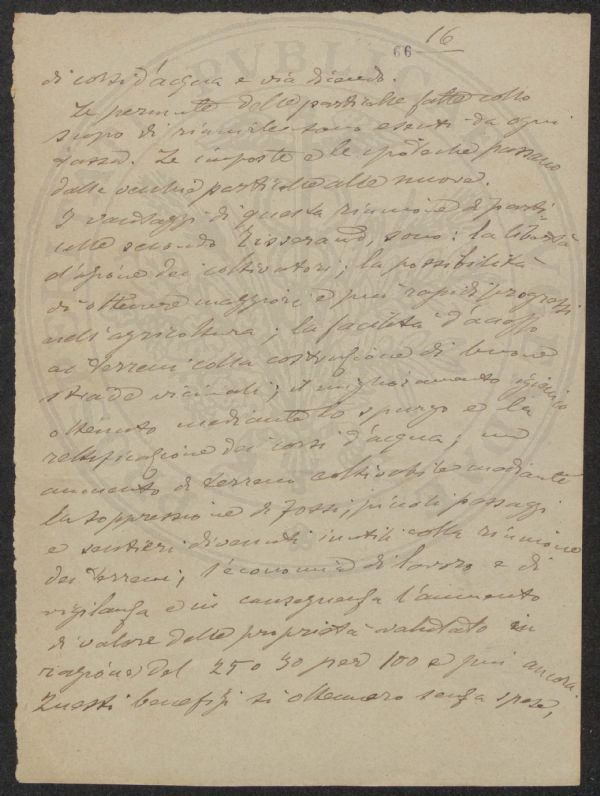 16
66
di corsi d'acqua e via dicendo.
Le permute delle particelle fatte collo
scopo di riunirle sono esenti da ogni
tassa. Le imposte e le ipoteche passano
dalle vecchie particelle alle nuove.
I vantaggi di questa riunione di parti-
celle secondo Tisserand, sono: la libertà
d'azione dei coltivatori; la possibilità
di ottenere maggiori e più rapidi progressi
nell'agricoltura; la facilità d'accesso
ai terreni colla costruzione di buone
strade vicinali; il miglioramento igienico
ottenuto mediante lo spurgo e la
rettificazione dei corsi d'acqua; un
aumento di terreni coltivabile mediante
la soppressione di fossi, piccoli passaggi
e sentieri divenuti inutili colla riunione
dei terreni; l'economia di lavoro e di
vigilanza e in conseguenza l'aumento
di valore delle proprietà valutato in
ragione del 25 o 30 per 100 e più ancora.
Questi benefizi si ottennero senza spese,